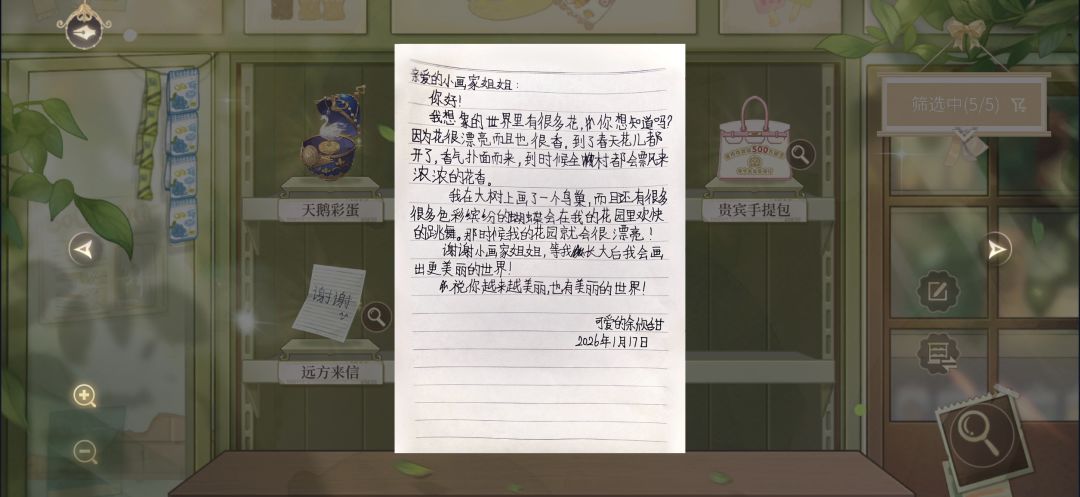 亲爱的小画家姐姐：
你好！
我想象的世界里有很多花，你想知道吗？
因为花很漂亮而且也很香，到了春天花儿都
开了，香气扑面而来，到时候全村都会飘来
浓浓的花香。
我在大树上画了一个鸟巢，而且还有很多
很多色彩缤纷的蝴蝶会在我的花园里欢快
的跳舞。那时候我的花园就会很漂亮！
谢谢小画家姐姐，等我长大后我会画
出更美丽的世界！
祝你越来越美丽，也有美丽的世界！
可爱的徐欣甜
2026年1月17日
筛选中(5/5)
天鹅彩蛋
500
贵宾手提包
谢谢
远方来信